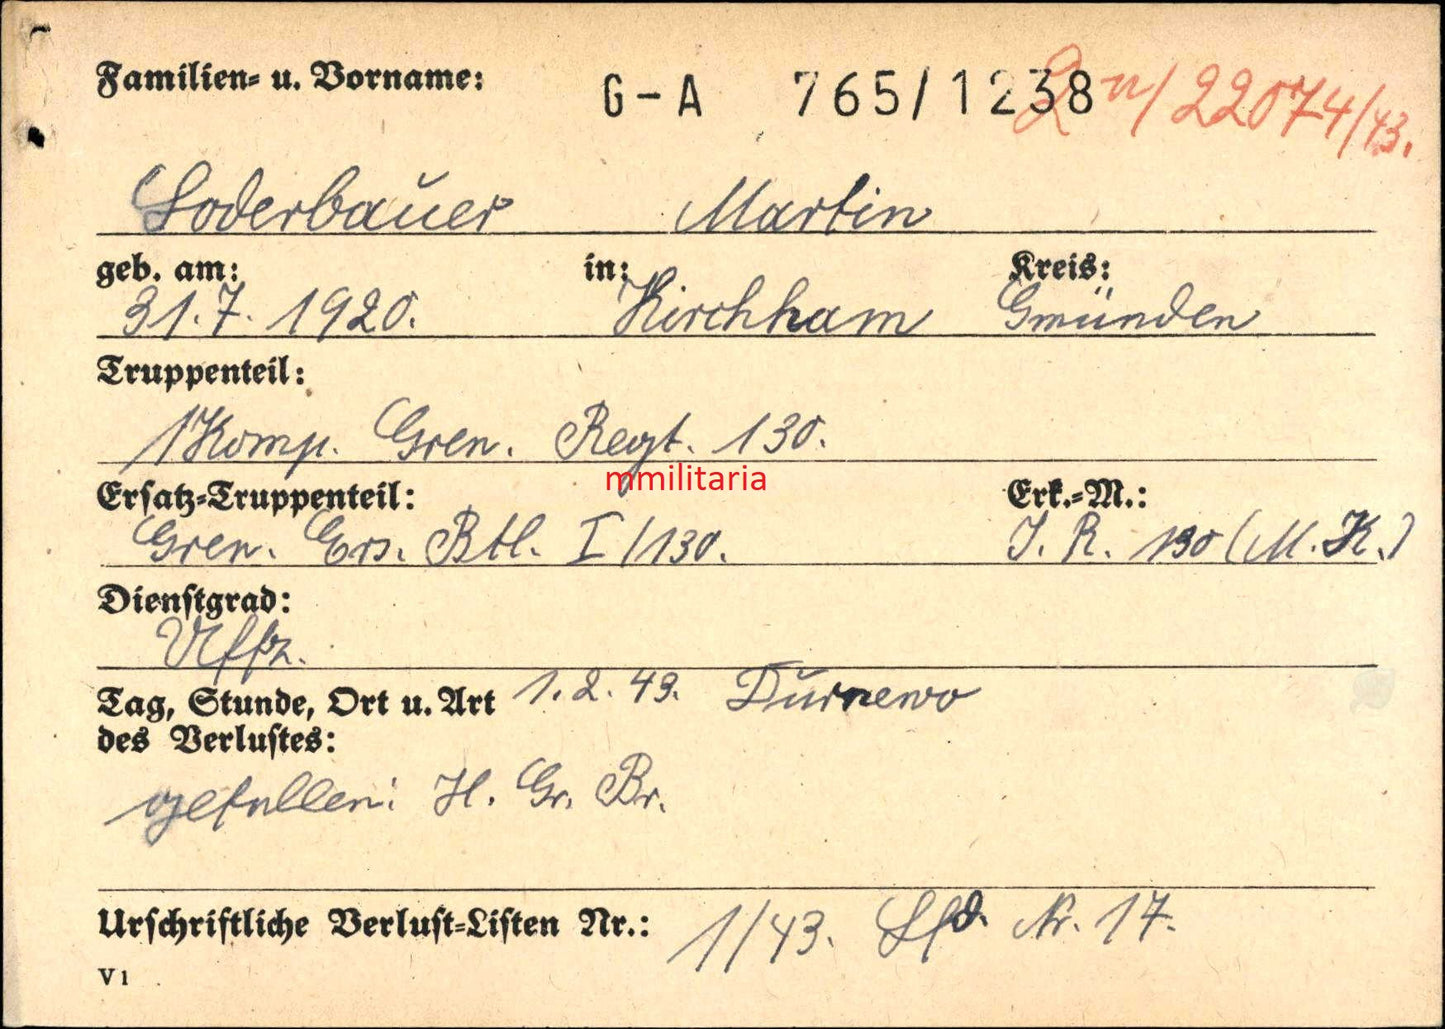 Familien- u. Vorname:
G-A 765/1238
n/22074/43.
Loderbauer Martin
geb. am: in: Kreis:
31.7.1920. Kirchham Gmünden
Truppenteil:
1 Komp. Gren. Regt. 130.
mmilitaria
Ersatz-Truppenteil: Erk.-M.:
Gren. Ers. Btl. I/130. J. R. 130 (M.K.)
Dienstgrad:
Uffz.
Tag, Stunde, Ort u. Art 1.2.43. Durnewo
des Verlustes:
gefallen: H. Gr. Br.
Urschriftliche Verlust-Listen Nr.: 1/43. Lfd. Nr. 17.
V 1